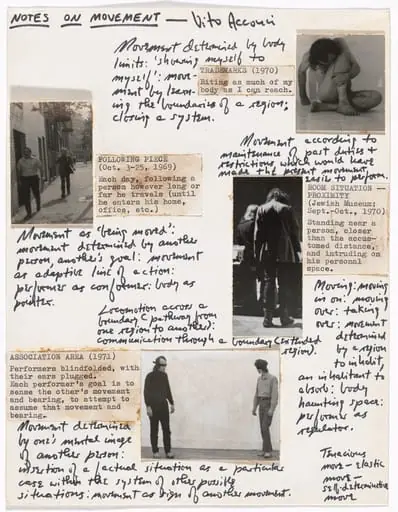 NOTES ON MOVEMENT — Vito Acconci
Movement determined by body
limits: 'showing myself to
myself': move-
ment by learn-
ing the boundaries of a region:
closing a system.
TRADEMARKS (1970)
Biting as much of my
body as I can reach.
Movement according to
maintenance of past duties &
restrictions, which would have
made the present movement
easie to perform.
FOLLOWING PIECE
(Oct. 3-25, 1969)
Each day, following a
person however long or
far he travels (until
he enters his home,
office, etc.)
ROOM SITUATION—
PROXIMITY
(Jewish Museum:
Sept.-Oct., 1970)
Standing near a
person, closer
than the accus-
tomed distance,
and intruding on
his personal
space.
Movement as 'being moved':
movement determined by another
person, another's goal: movement
as adaptive line of action:
performer as conformer: body as
pointer.
Locomotion across a
boundary (pathway from
one region to another):
communication through a boundary (extended
region).
Moving: moving
in on: moving
over: taking
over: movement
determined
by a region
to inhabit,
an inhabitant to
absorb: body
haunting space:
performer as
regulator.
ASSOCIATION AREA (1971)
Performers blindfolded, with
their ears plugged.
Each performer's goal is to
sense the other's movement
and bearing, to attempt to
assume that movement and
bearing.
Movement determined
by one's mental image
of another person:
insertion of a factual situation as a particular
case within the system of other possible
situations: movement as sign of another movement.
Tenacious
move — elastic
move —
self-determinative
move